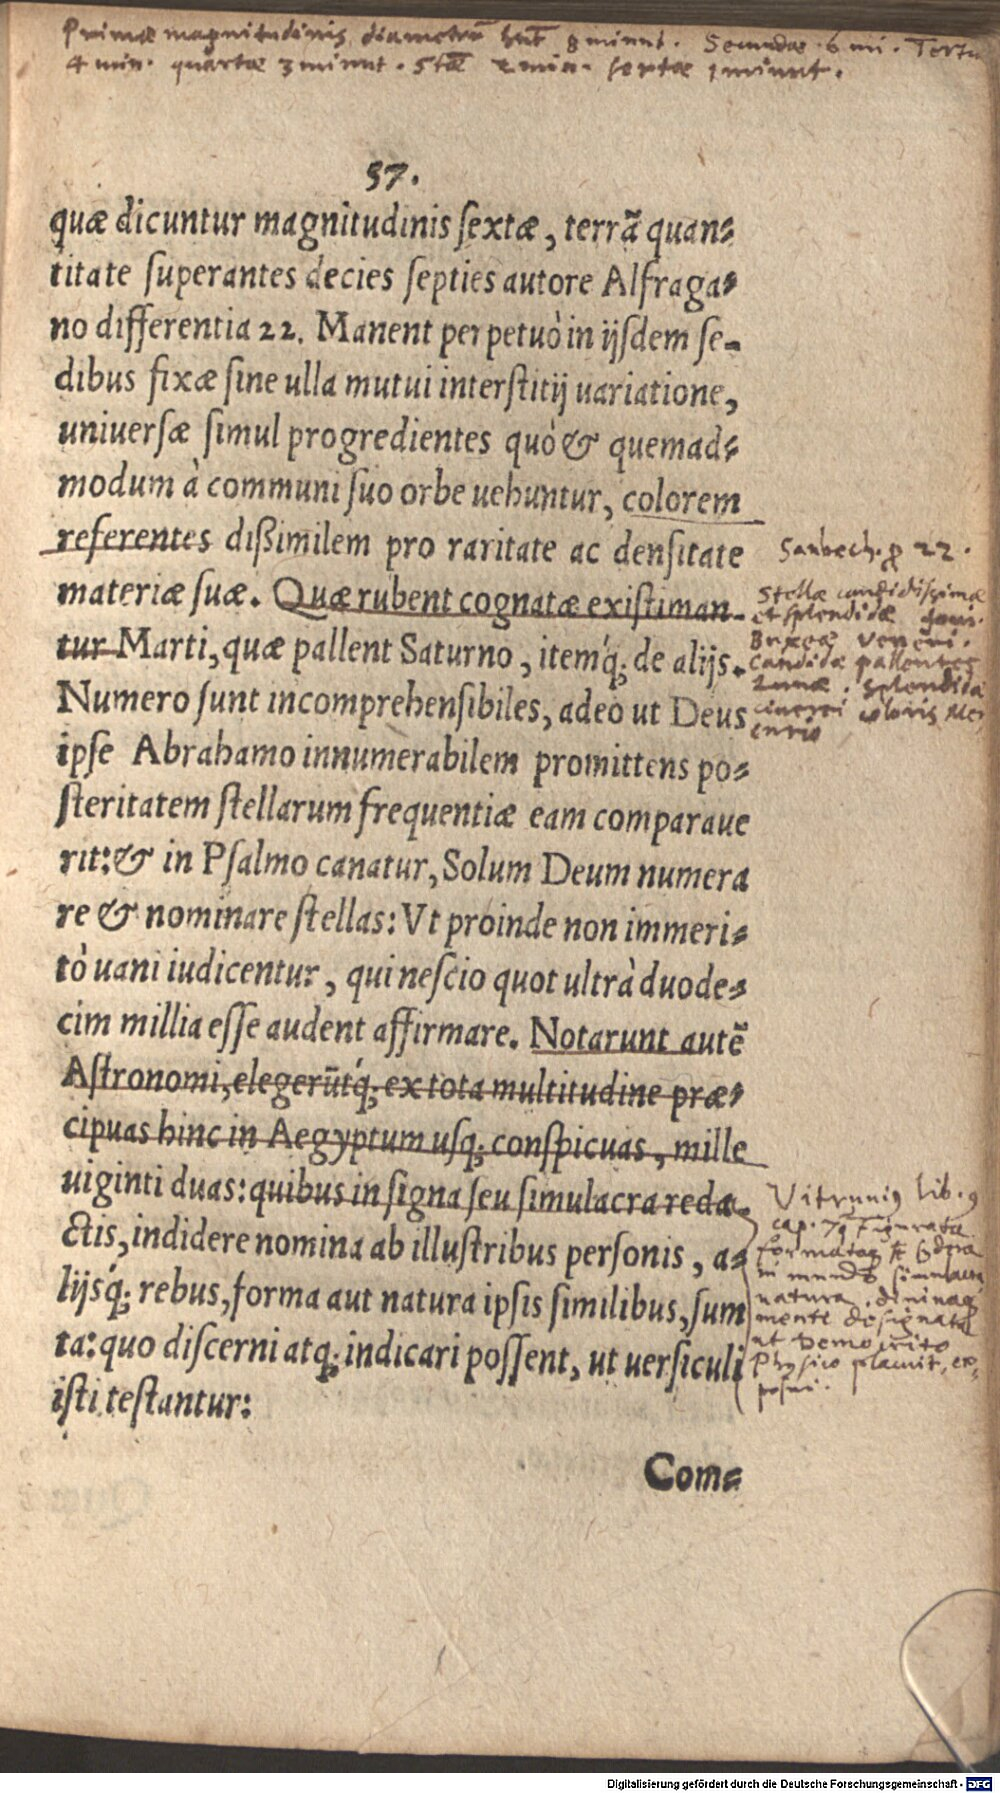 Primæ magnitudinis diametrũ hñt 8 minut. Secundæ 6 mi. Tertiæ
4 min. quartæ 3 minut. 5tæ 2 min. sextæ 1 minut.
57.
quæ dicuntur magnitudinis ſextæ, terrã quan⸗
titate ſuperantes decies ſepties autore Alfraga⸗
no differentia 22. Manent perpetuò in ijſdem ſe⸗
dibus fixæ ſine ulla mutui interſtitij uariatione,
uniuerſæ ſimul progredientes quò & quemad⸗
modum à communi ſuo orbe uehuntur, colorem
referentes dißimilem pro raritate ac denſitate
materiæ ſuæ. Quæ rubent cognatæ exiſtiman⸗
tur Marti, quæ pallent Saturno, itemq́; de alijs.
Numero ſunt incomprehenſibiles, adeo ut Deus
ipſe Abrahamo innumerabilem promittens po⸗
ſteritatem ſtellarum frequentiæ eam comparaue
rit: & in Pſalmo canatur, Solum Deum numera
re & nominare ſtellas: Vt proinde non immeri⸗
tò uani iudicentur, qui neſcio quot ultrà duode⸗
cim millia eſſe audent affirmare. Notarunt autẽ
Aſtronomi, elegerũtq́; ex tota multitudine præ⸗
cipuas hinc in Aegyptum uſq; conſpicuas, mille
uiginti duas: quibus in ſigna ſeu ſimulacra reda⸗
ctis, indidere nomina ab illuſtribus perſonis, a⸗
lijsq́; rebus, forma aut natura ipſis ſimilibus, ſum
ta: quo diſcerni atq; indicari poſſent, ut uerſiculi
iſti teſtantur:
Com⸗
Sanbech. p 22.
Stellæ candidissimæ
et splendidæ Joui.
Buxeæ Veneri.
Candidæ pallentes
Lunæ. Splendidæ
cinerei coloris Mer
curio
Vitruuius lib. 9
cap. 7 Figurata
formataq sidera
in mundo simulacra
natura diuinaq
mente designata
ut Democrito
Physico placuit, ex⸗
posui.
Digitalisierung gefördert durch die Deutsche Forschungsgemeinschaft - DFG